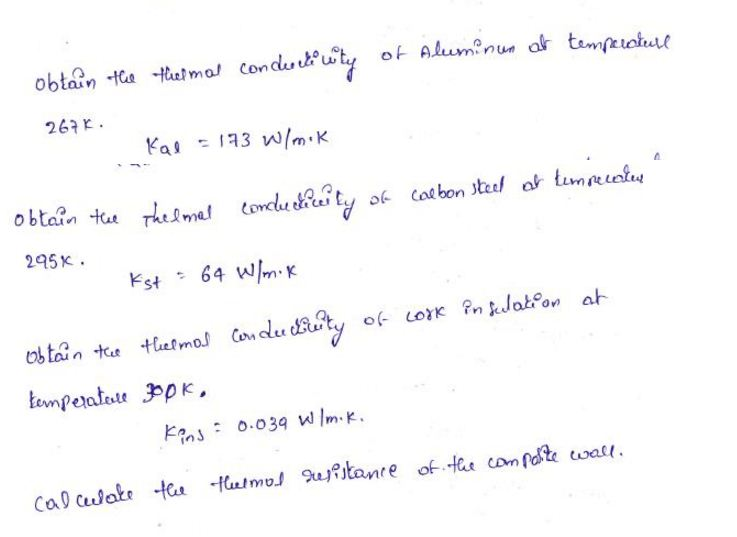 obtain the thermal conductivity of Aluminum at temperature
267K.
Kal = 173 W/m·K
obtain the Thermal conductivity of carbon steel at temperature
295K.
Kst = 64 W/m·K
obtain the thermal conductivity of cork insulation at
temperature 300K.
Kins = 0.039 W/m.K.
Calculate the thermal resistance of the compsite wall.